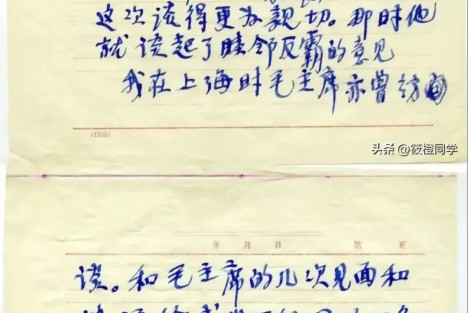 这次谈得更为亲切。那时他
就谈起了睦邻反霸的意见
我在上海时毛主席亦曾访
头条 @筱橙同学
年 月 日 第 页
谈。和毛主席的几次见面和